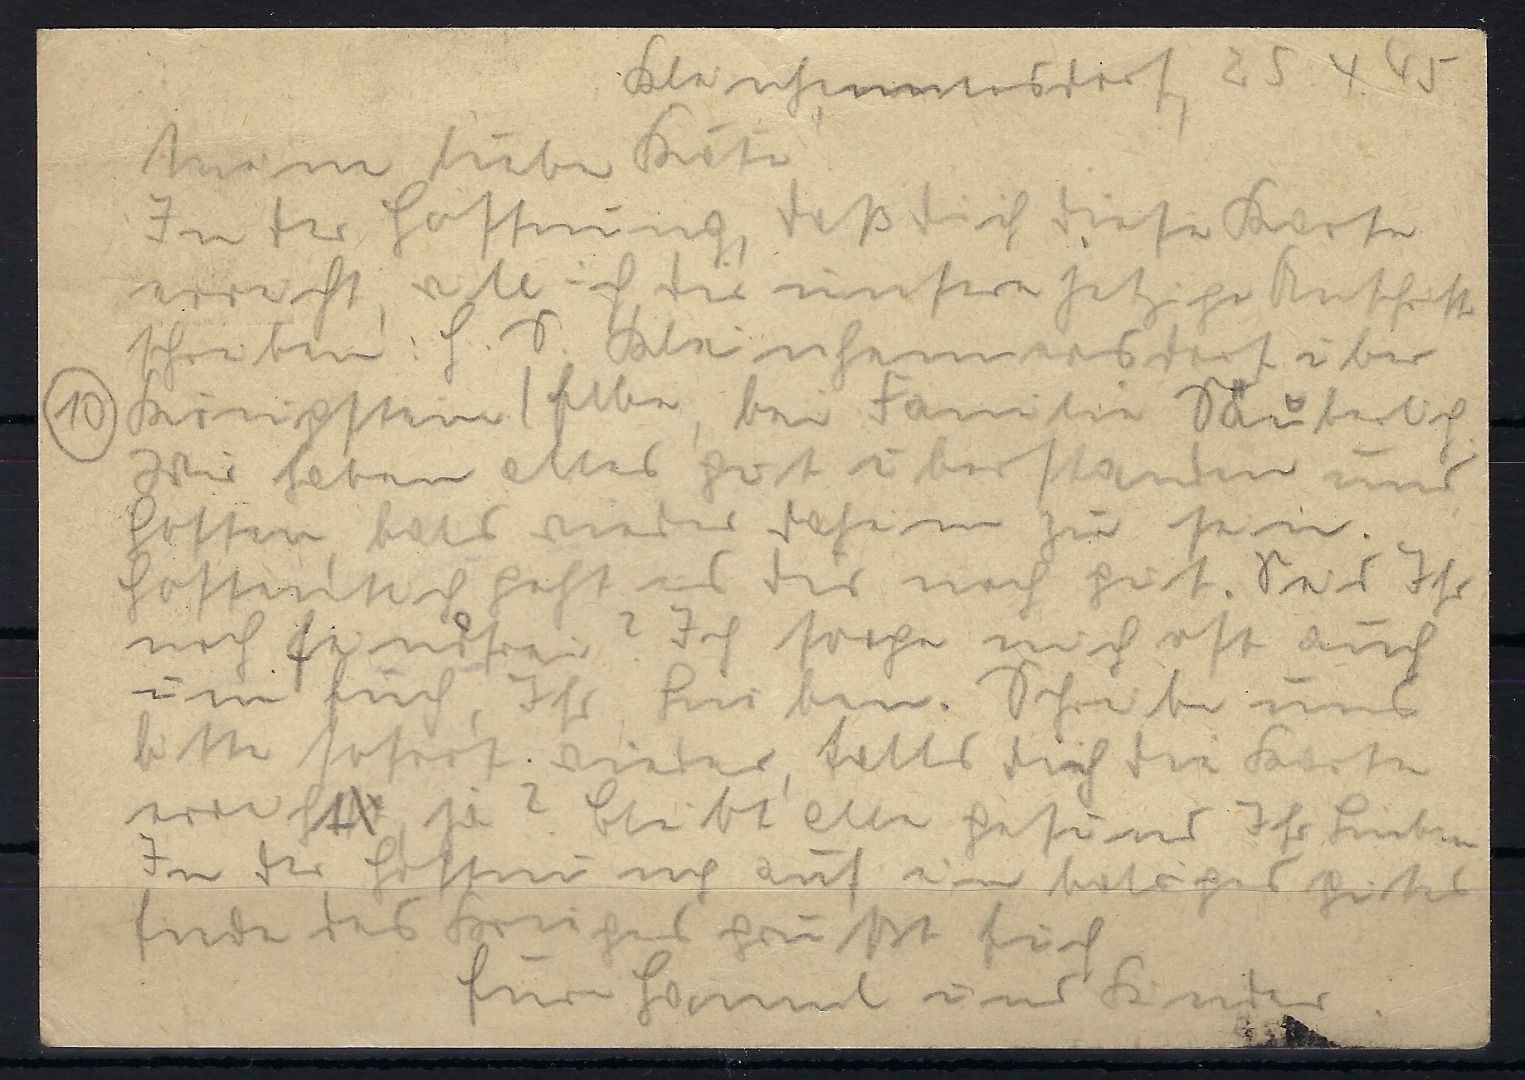 Kleinhennersdorf, 25.4.45
Meine liebe Käte
In der Hoffnung, daß dich diese Karte
erreicht, will ich dir unsere jetzige Anschrift
schreiben: H. S. Kleinhennersdorf über
(10) Königstein/Elbe, bei Familie Säuberlich.
Wir haben alles gut überstanden und
hoffen, bald wieder daheim zu sein.
Hoffentlich geht es dir noch gut. Seid Ihr
noch feindfrei? Ich sorge mich oft auch
um Euch, Ihr Lieben. Schreibe uns
bitte sofort wieder, falls dich die Karte
erreicht, ja? Bleibt alle gesund Ihr Lieben
In der Hoffnung auf ein baldiges gutes
Ende des Krieges grüßt Euch
Eure Hannel und Kinder.